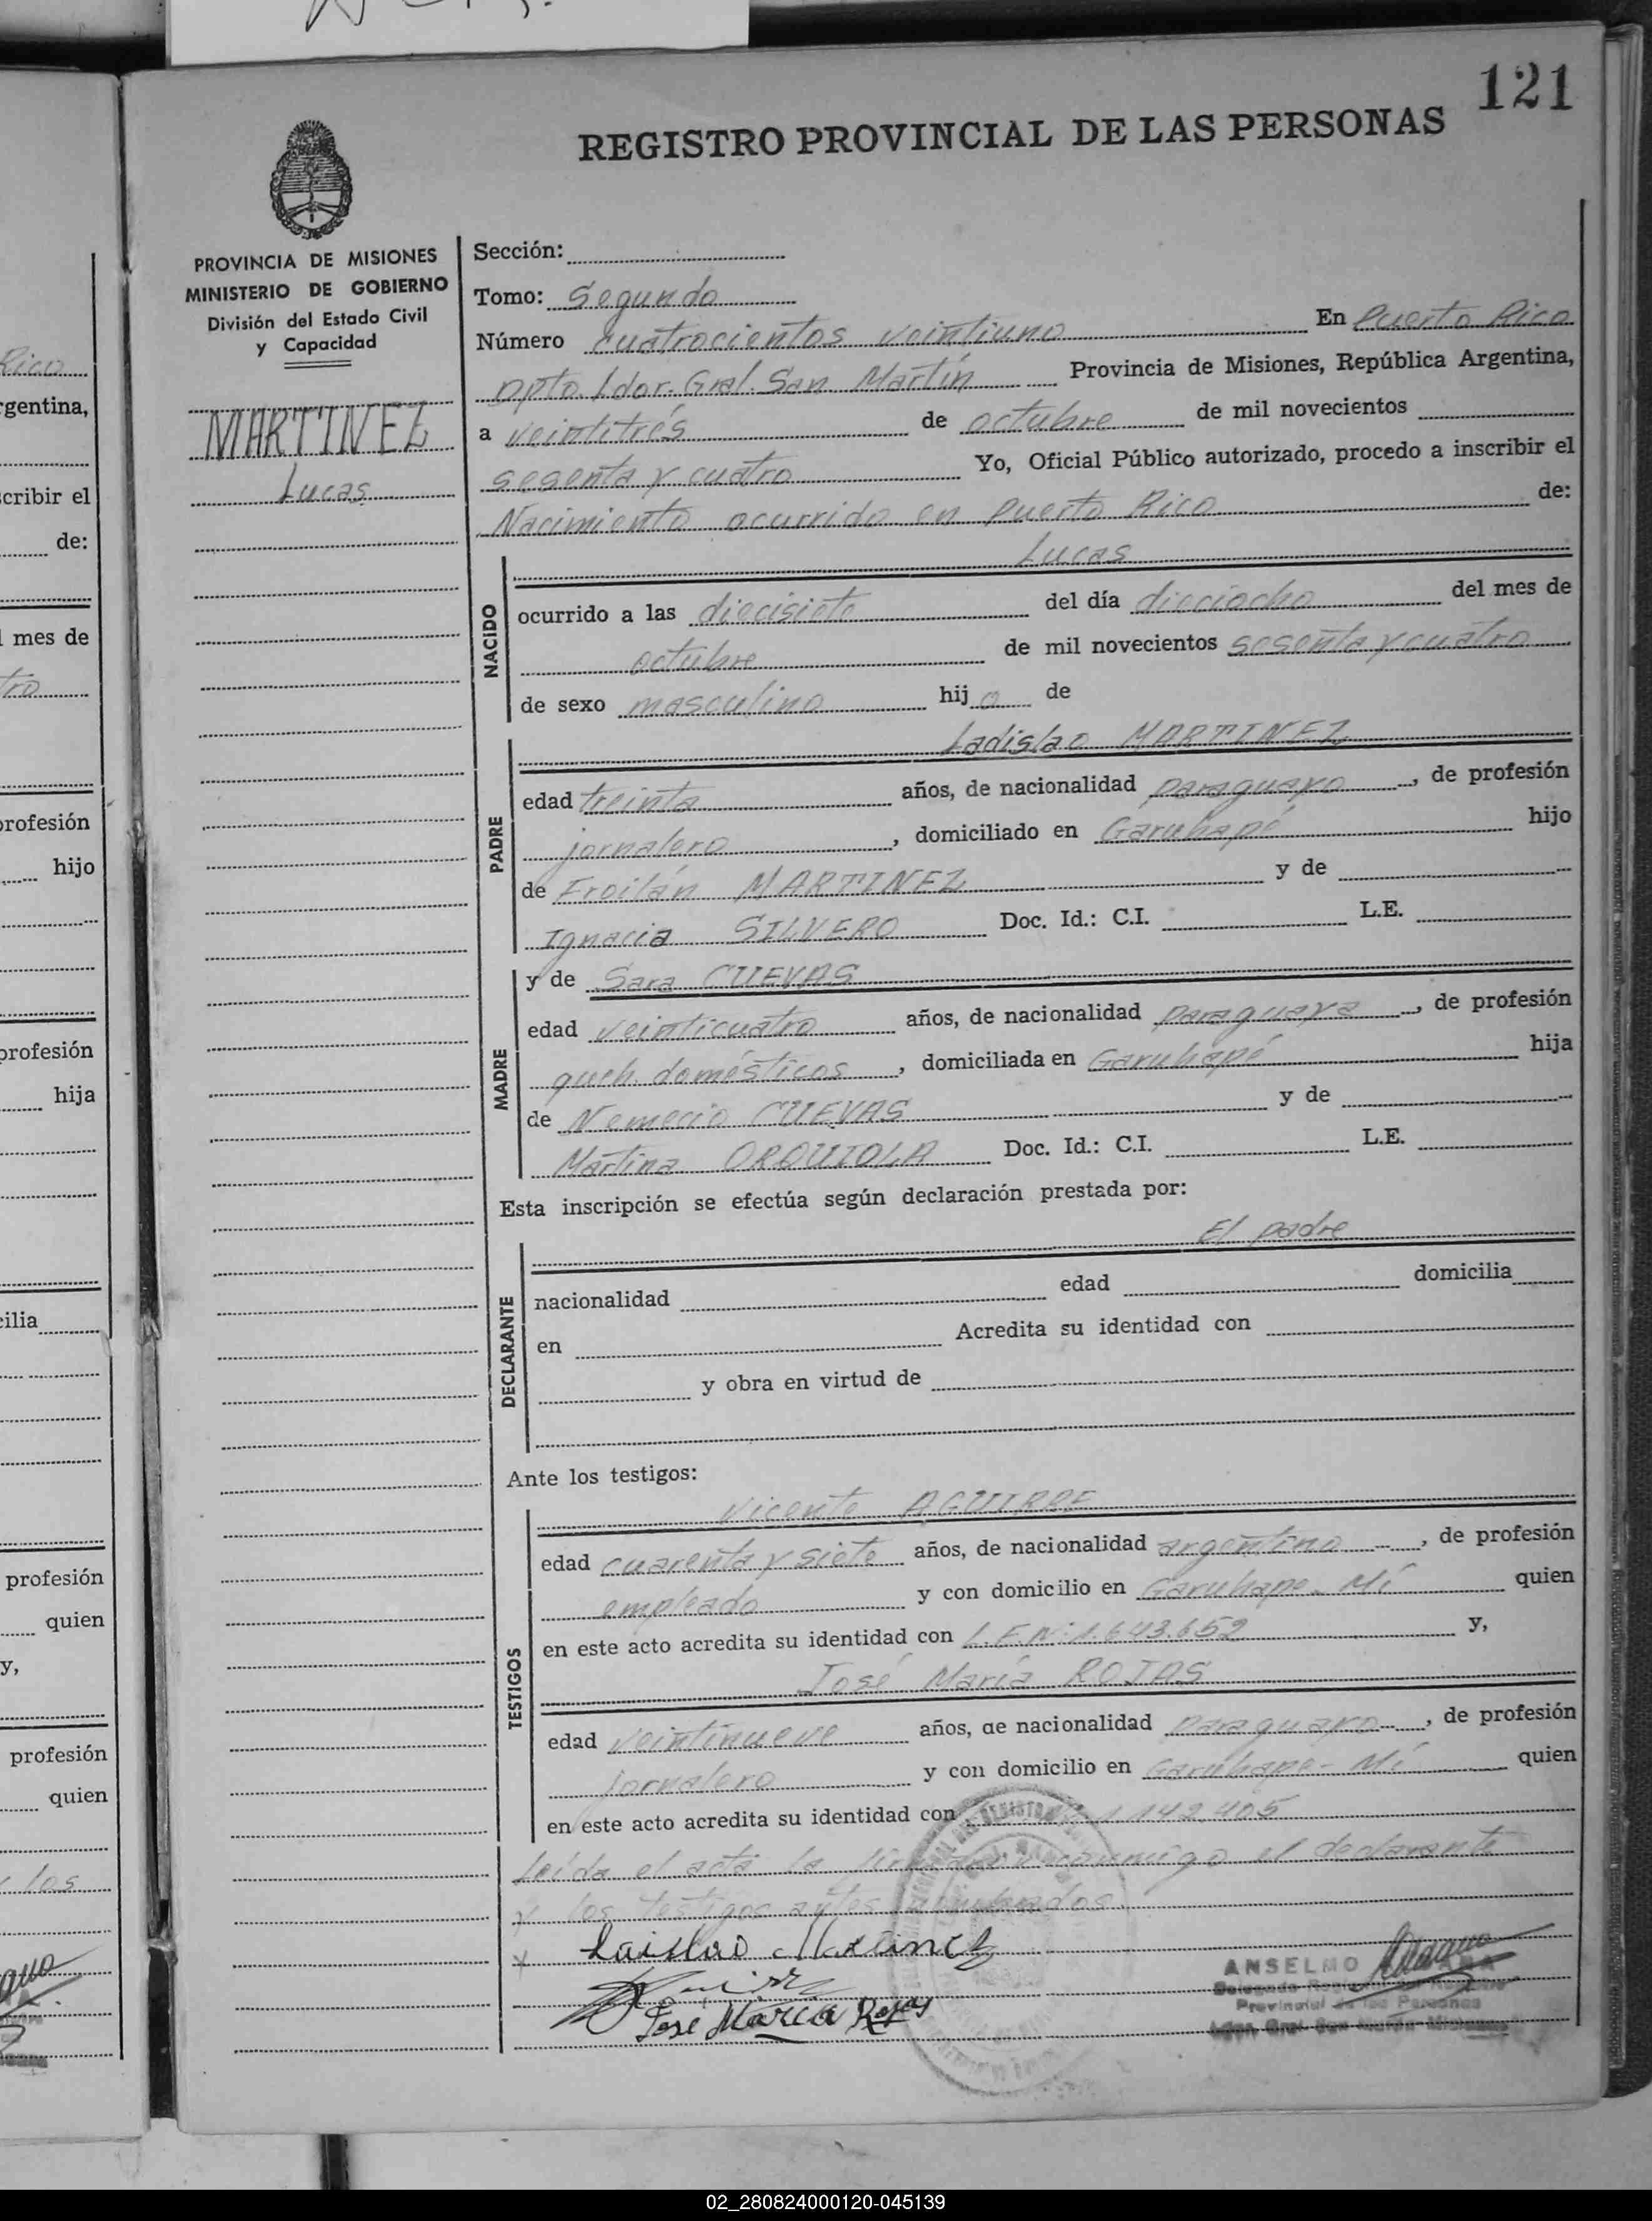 121
REGISTRO PROVINCIAL DE LAS PERSONAS
PROVINCIA DE MISIONES
MINISTERIO DE GOBIERNO
División del Estado Civil
y Capacidad
MARTINEZ
Lucas
Sección:
Tomo: Segundo
Número cuatrocientos veintiuno En Puerto Rico
Dpto. Ldor. Gral. San Martín Provincia de Misiones, República Argentina,
a veintitrés de octubre de mil novecientos
sesenta y cuatro Yo, Oficial Público autorizado, procedo a inscribir el
Nacimiento ocurrido en Puerto Rico de:
Lucas
NACIDO
ocurrido a las diecisiete del día dieciocho del mes de
octubre de mil novecientos sesenta y cuatro
de sexo masculino hijo de
Ladislao MARTINEZ
PADRE
edad treinta años, de nacionalidad paraguayo, de profesión
jornalero, domiciliado en Garuhapé hijo
de Froilán MARTINEZ y de
Ignacia SILVERO Doc. Id.: C.I. L.E.
y de Sara CUEVAS
MADRE
edad veinticuatro años, de nacionalidad paraguaya, de profesión
queh. domésticos, domiciliada en Garuhapé hija
de Nemecio CUEVAS y de
Martina ORQUIOLA Doc. Id.: C.I. L.E.
Esta inscripción se efectúa según declaración prestada por:
El padre
DECLARANTE
nacionalidad edad domicilia
en Acredita su identidad con
y obra en virtud de
Ante los testigos:
Vicente AGUIRRE
TESTIGOS
edad cuarenta y siete años, de nacionalidad argentino, de profesión
empleado y con domicilio en Garuhape-Mí quien
en este acto acredita su identidad con L.E.Nº:1.643.652 y,
José María ROJAS
edad veintinueve años, de nacionalidad paraguayo, de profesión
jornalero y con domicilio en Garuhape-Mí quien
en este acto acredita su identidad con 1.142.405
Leída el acta la conmigo el declarante
y los testigos antes
x Laislao Martinez
José María Rojas
ANSELMO
Provincial de las Personas
Rico
rgentina,
cribir el
de:
l mes de
tro
profesión
hijo
profesión
hija
cilia
profesión
quien
y,
profesión
quien
los
02_280824000120-045139